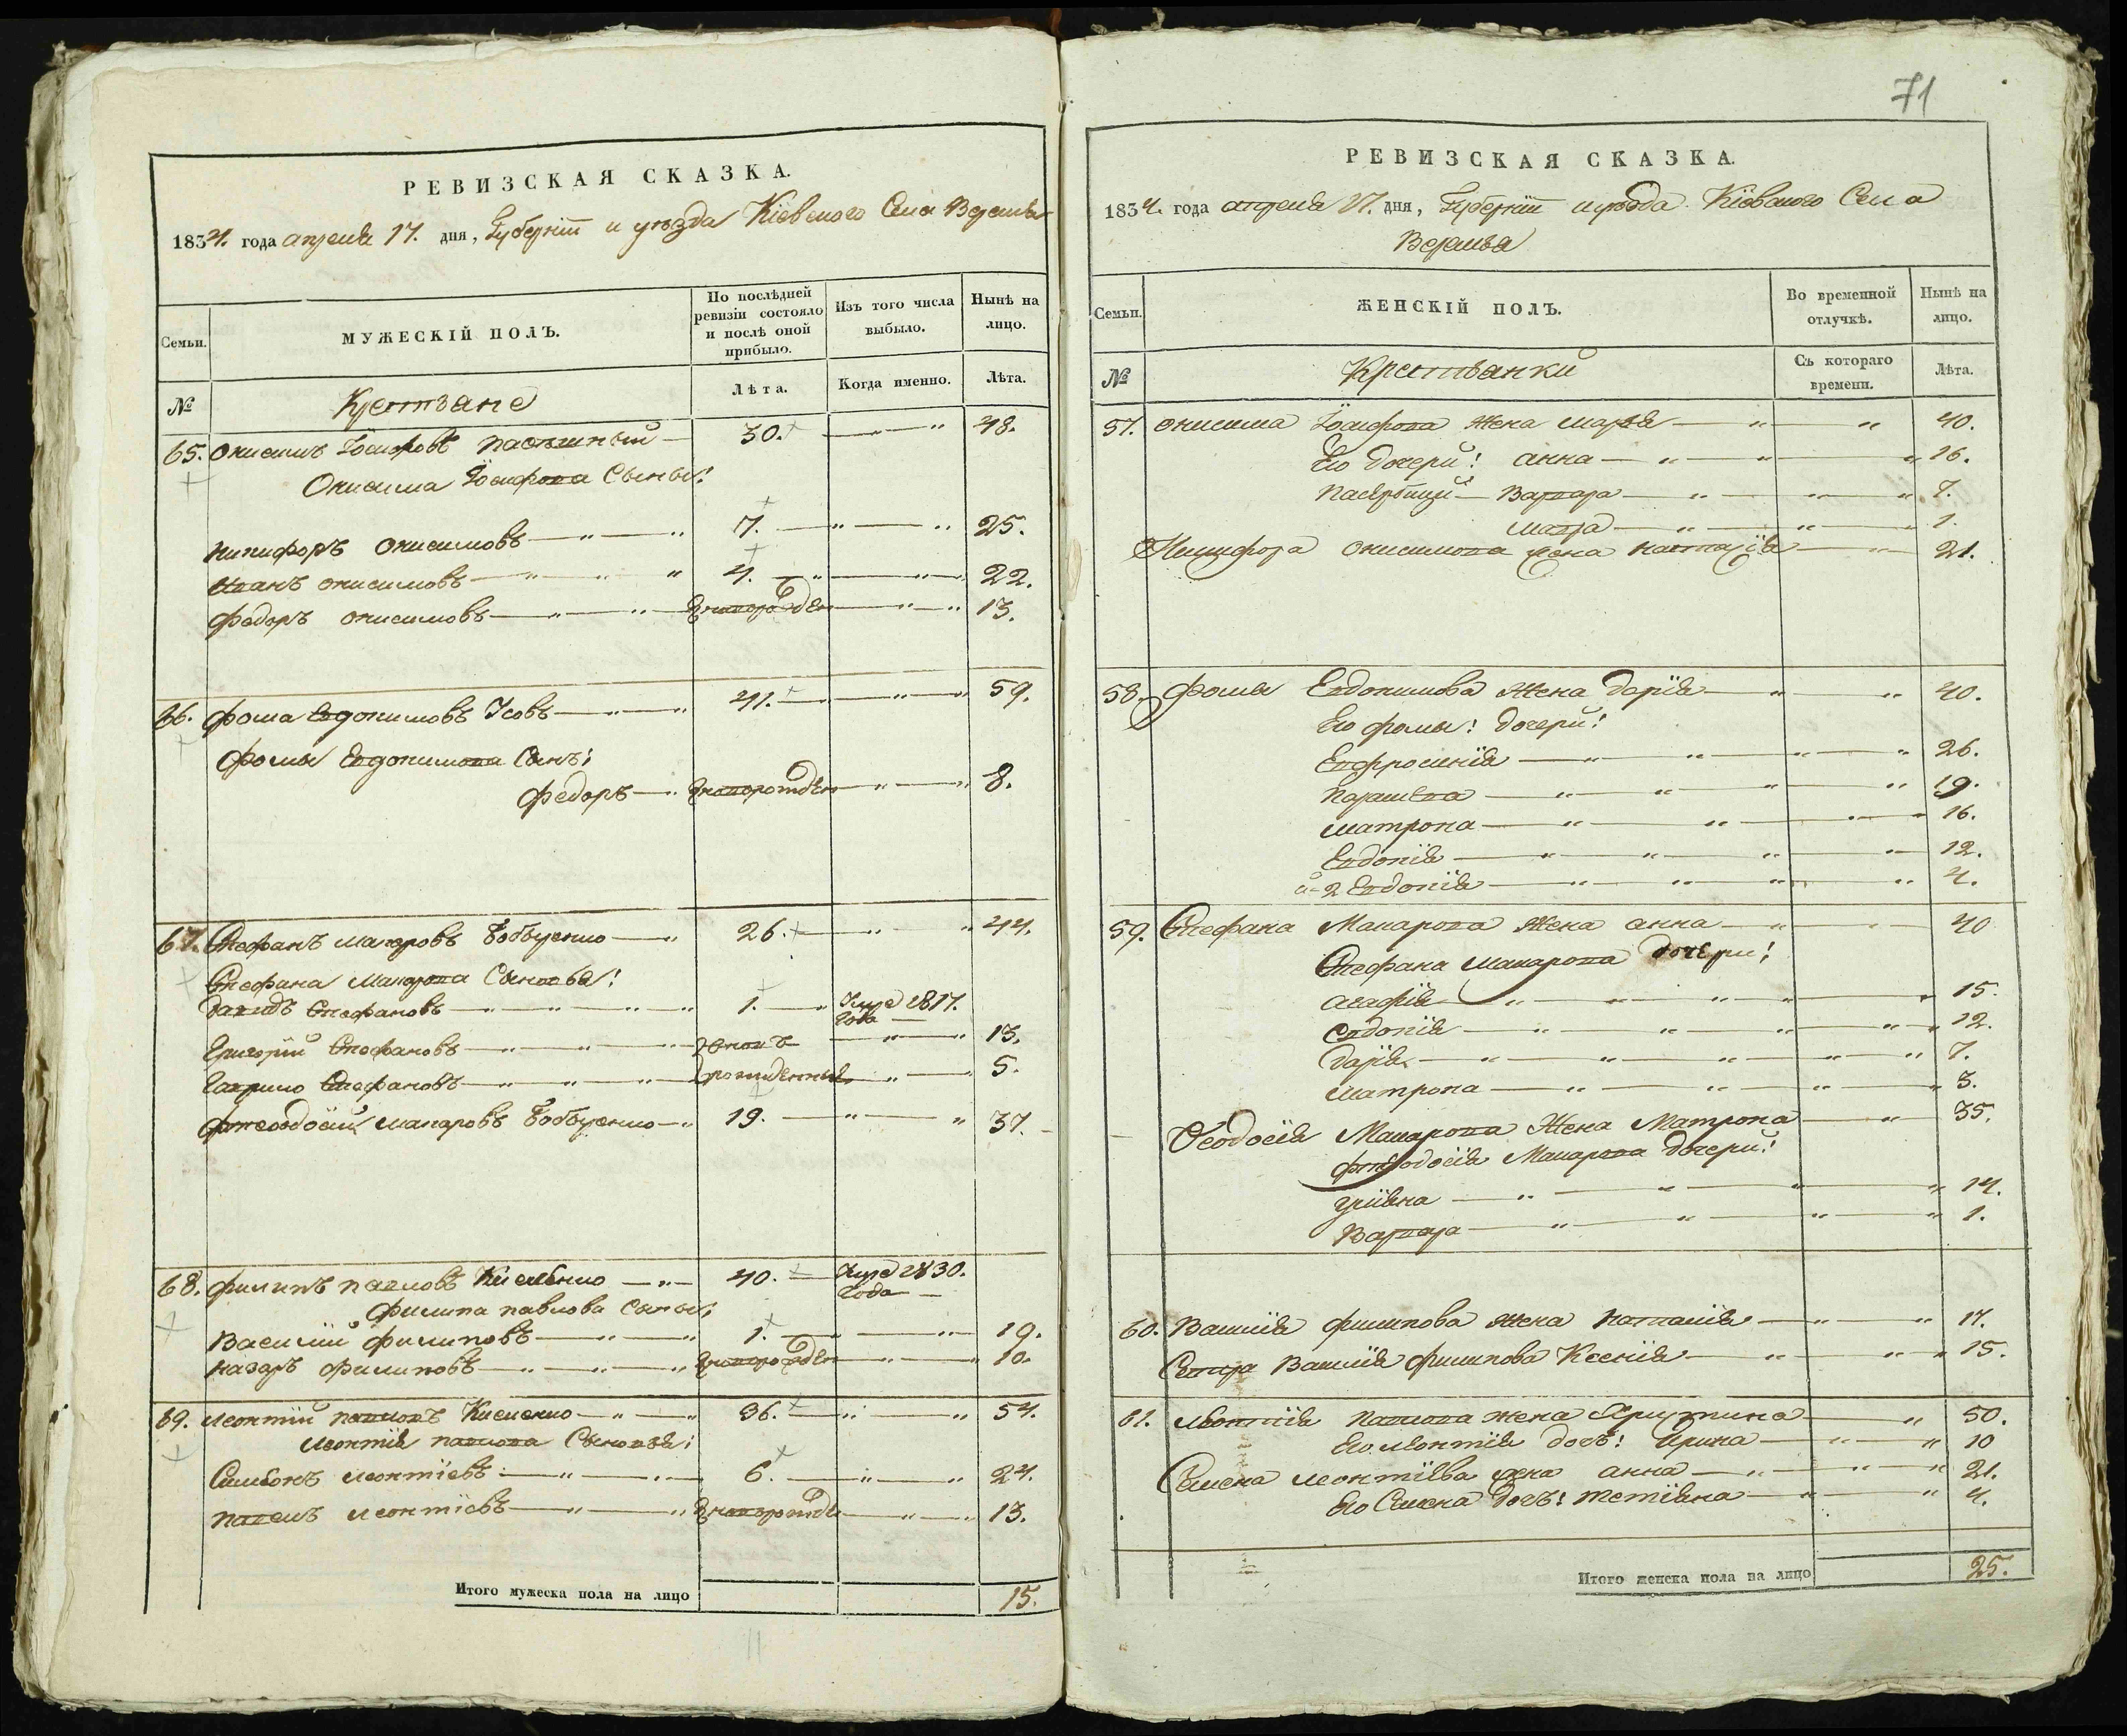 71
РЕВИЗСКАЯ СКАЗКА.
1834. года апреля 17. дня, Губернїи и уѣзда Кїевского Села Веремья
Семьи.
МУЖЕСКІЙ ПОЛЪ.
По послѣдней ревизіи состояло и послѣ оной прибыло.
Изъ того числа выбыло.
Нынѣ на лицо.
№
Крестьяне
Лѣта.
Когда именно.
Лѣта.
65. Онисимъ Їосифовъ — 30. — " 48.
Онисима Їосифова Сыны:
Никифоръ Онисимовъ — " — " 7. — " — " 25.
Иванъ Онисимовъ — " — " 4. — " — " 22.
Федоръ Онисимовъ — " — " — " — " 13.
66. Фома Евдокимовъ Усовъ — " — " 41. — " — " 59.
Фомы Евдокимова Сынъ:
Федоръ — " новорожден — " — " 8.
67. Стефанъ Макаровъ — " 26. — " — " 44.
Стефана Макарова Сыновья:
Давидъ Стефановъ — " — " — " 1. — " Умре 1817. Года —
Григорїй Стефановъ — " — " — вновь — " — " 13.
Гаврило Стефановъ — " — " — рожденные — " — 5.
Фтеодосїй Макаровъ — " 19. — " — " 37. —
68. Филипъ Павловъ Киселенко — " — 40. — Умре 1830. Года —
Филипа Павлова Сыны:
Василїй Филиповъ — " — " 1. — " — 19.
Назаръ Филиповъ — " — " — " новорожден — " — " 10.
69. Леонтїй Павловъ Киселенко — " — " 36. — " — " 54.
Леонтїя Павлова Сыновья:
Симеонъ Леонтїевъ — " — " — 6. — " — " 24.
Павелъ Леонтїевъ — " — " новорожде — " — " 13.
Итого мужеска пола на лицо 15.
РЕВИЗСКАЯ СКАЗКА.
1834. года апреля 17. дня, Губернїи и уѣзда Кїевского Села
Веремья
Семьи.
ЖЕНСКІЙ ПОЛЪ.
Во временной отлучкѣ.
Нынѣ на лицо.
№
Крестьянки
Съ котораго времени.
Лѣта.
57. Онисима Їосифова Жена Марья — " — " 40.
Его дочери: Анна — " — " — " 16.
Варвара — " — " — " 7.
— " — " — " 1.
Никифора Онисимова жена — " — 21.
58. Фомы Евдокимова Жена Дарїя — " — " 40.
Его Фомы: дочери:
Евфросинїя — " — " — " — " 26.
Парасева — " — " — " — " 19.
Матрона — " — " — " — " 16.
Евдокїя — " — " — " — " 12.
и 2 Евдокїя — " — " — " — " 4.
59. Стефана Макарова Жена Анна — " — " — 40
Стефана Макарова дочери:
Агафїя — " — " — " — " — " 15.
Евдокїя — " — " — " — " — " 12.
Дарїя — " — " — " — " — " 7.
Матрона — " — " — " — " 3.
Феодосїя Макарова Жена Матрона — " — 35.
Фтеодосїя Макарова дочери:
— " — " — " — " 14.
Варвара — " — " — " — " 1.
60. Василїя Филипова Жена Наталїя — " — " 17.
Сестра Василїя Филипова Ксенїя — " — " — " 15.
61. Леонтїя Павлова жена Христина — " 50.
Его Леонтїя дочь: Ирина — " — " 10
Семена Леонтїева жена Анна — " — " — " 21.
Его Семена дочь: Тетїяна — " — " 4.
Итого женска пола на лицо 25.